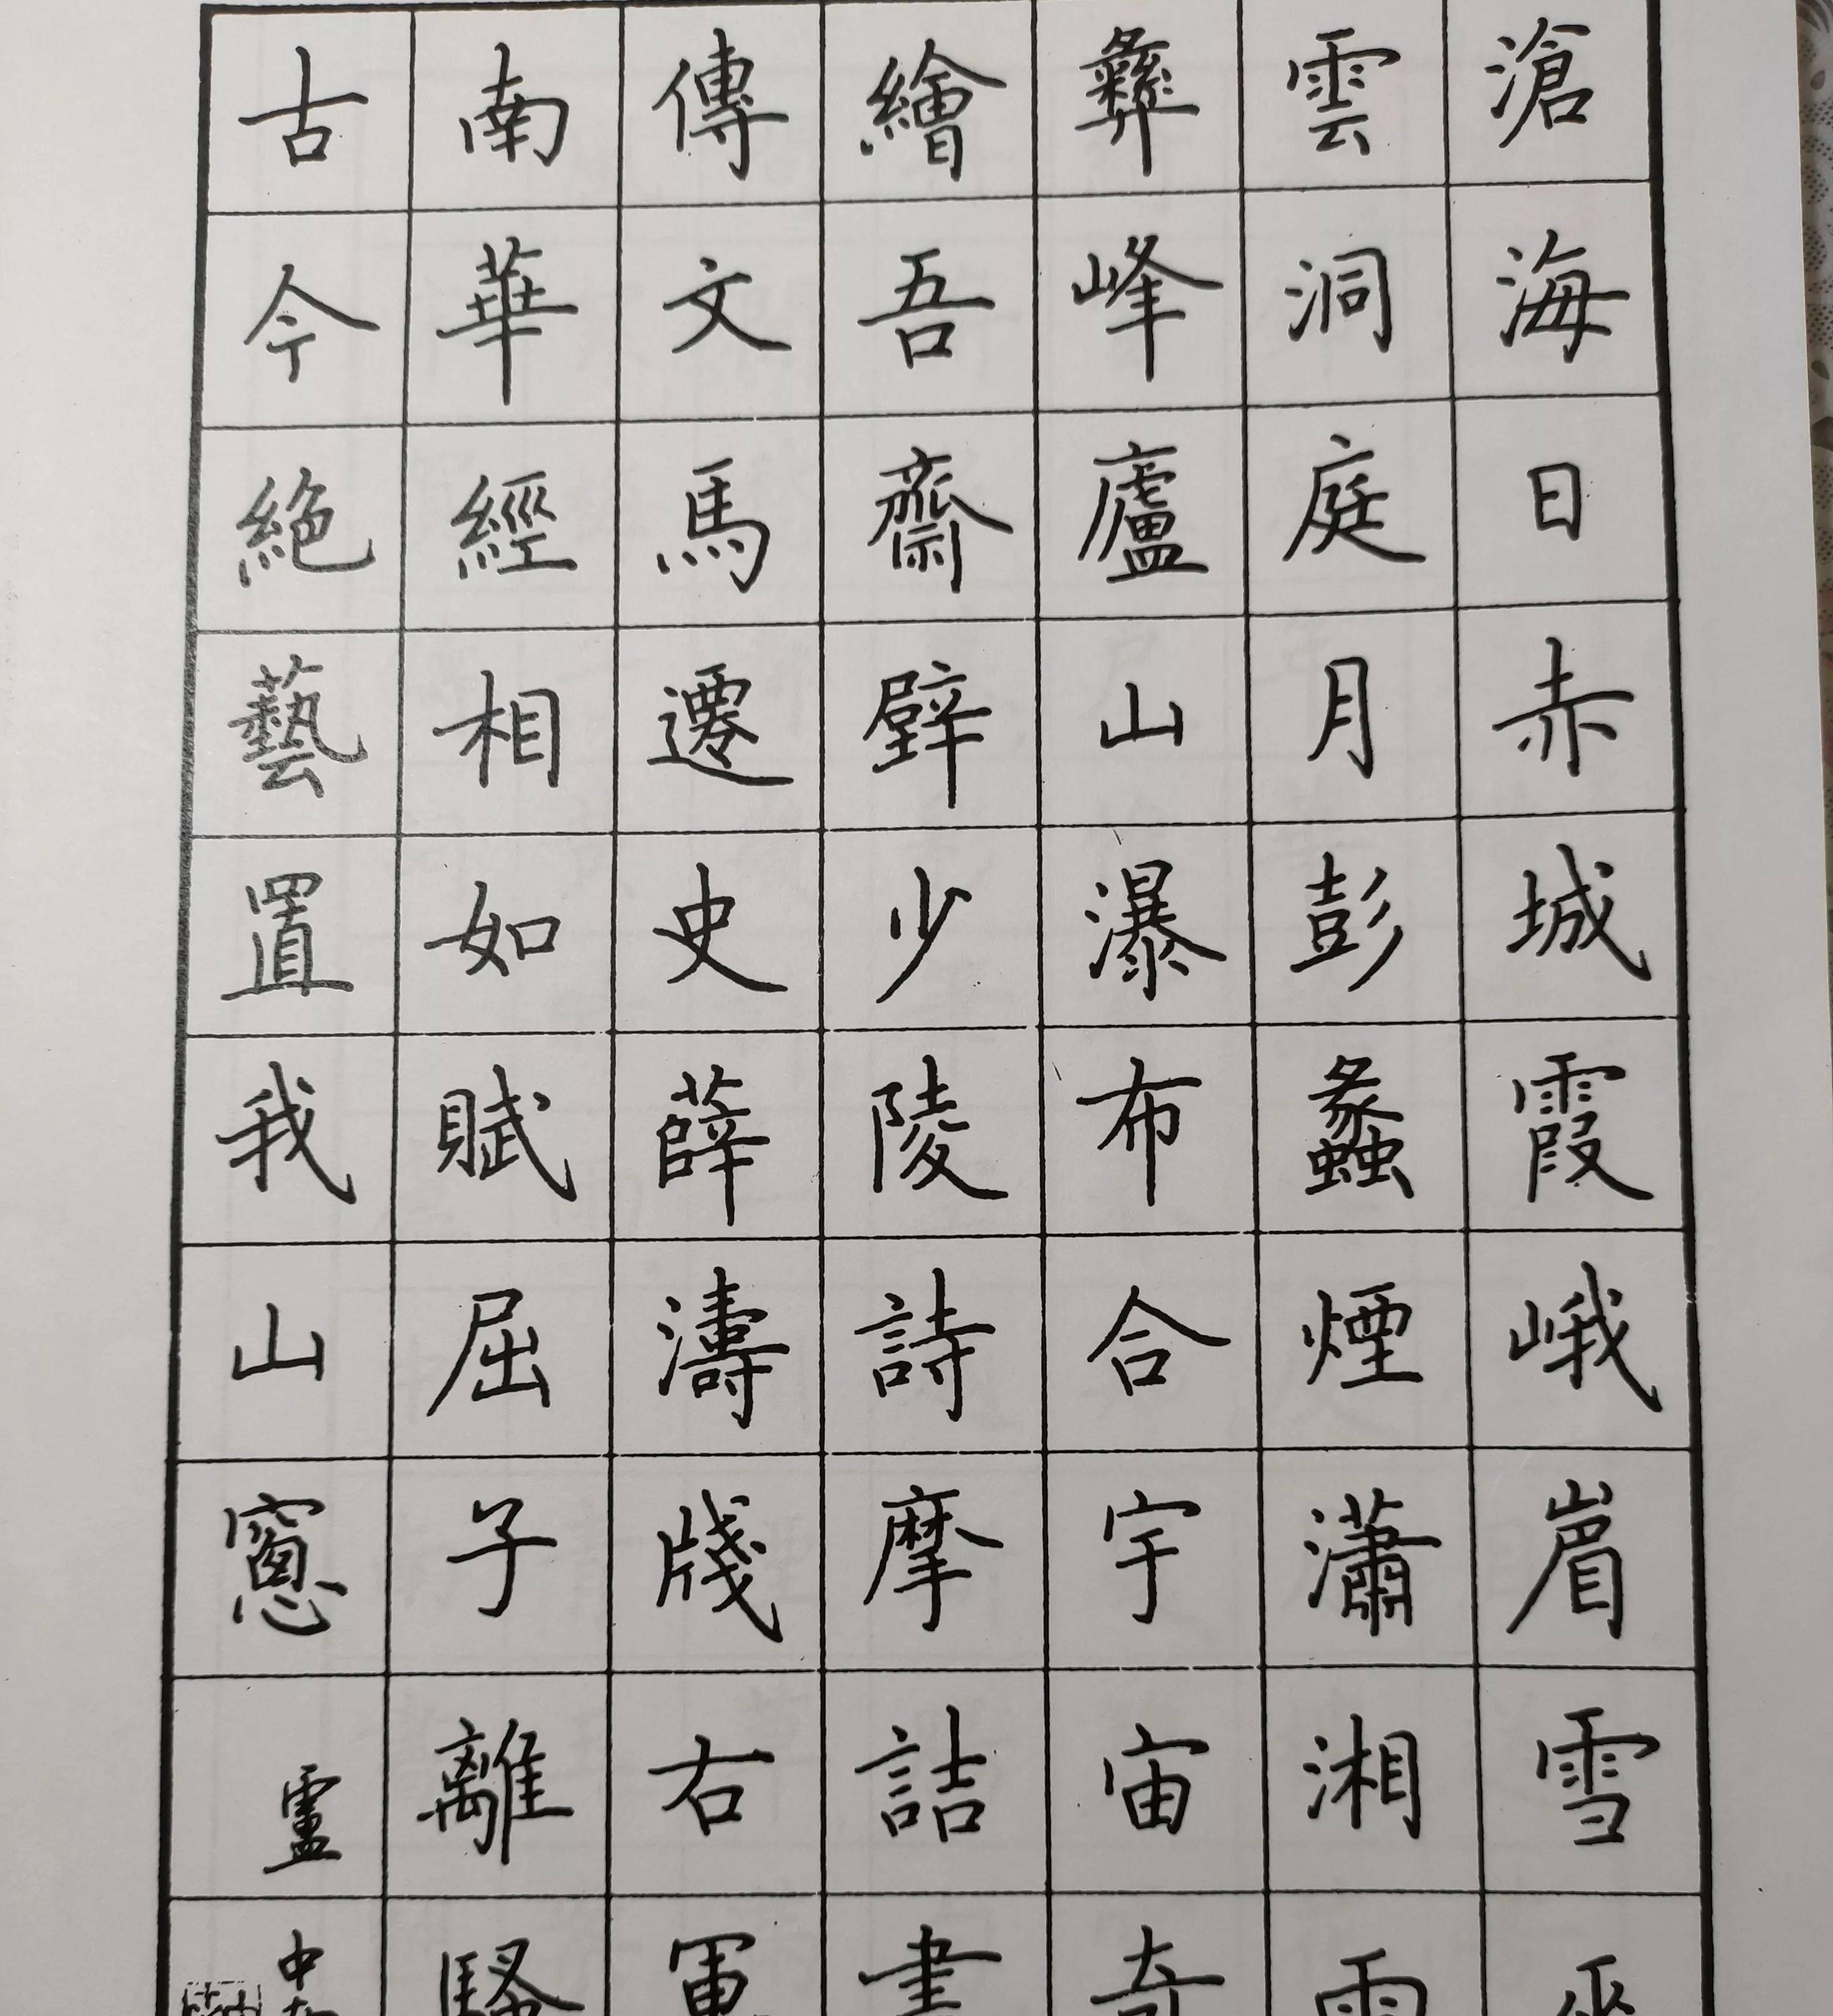 滄海日赤城霞峨眉雪巫
雲洞庭月彭蠡煙瀟湘雨
彝峰廬山瀑布合宇宙奇
繪吾齋壁少陵詩摩詰畫
傳文馬遷史薛濤牋右軍
南華經相如賦屈子離騷
古今絶藝置我山窗
盧中